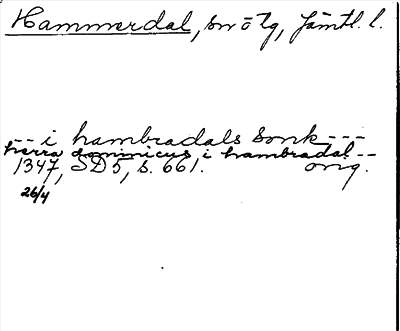 Hammerdal, sn o tg, Jämtl. l.
-- i hambradals sonk ---
herra dominicus i hambradal --
1347, SD 5, s. 661. orig.
26/4